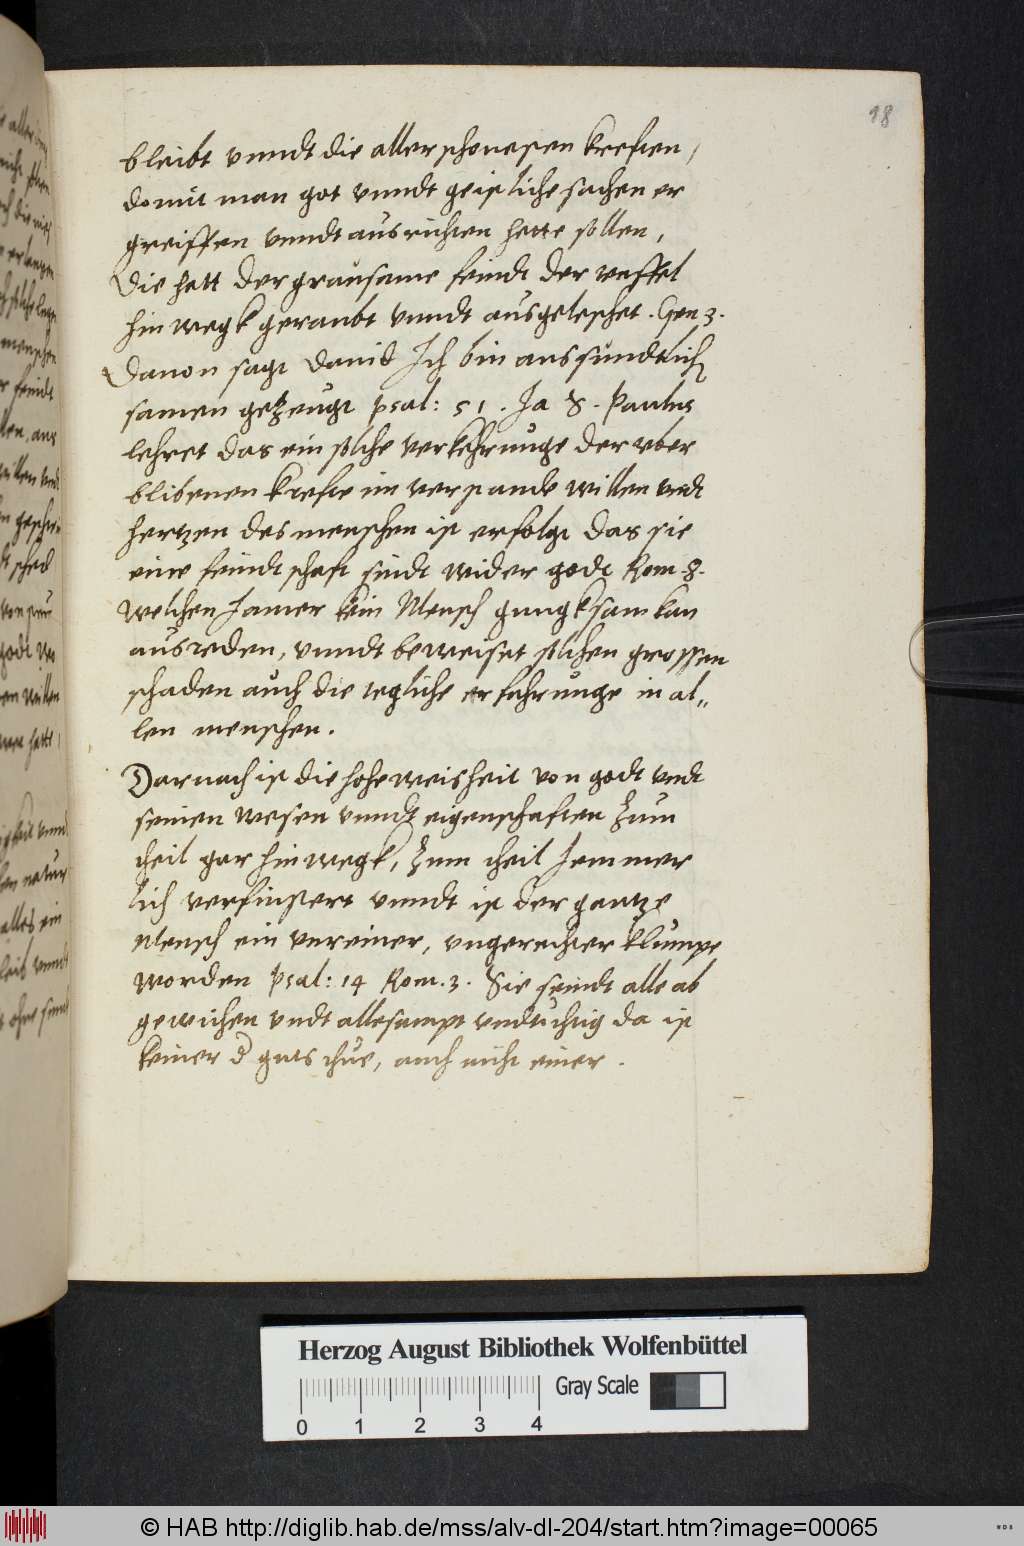 18
bleibt vnndt die allerschonesten kreften,
domit man got vnndt geistliche sachen er
greiffen vnndt ausrichten hette sollen,
Die hatt der grausame feindt der
hin wegk geraubt vnndt ausgeleschet. Gen 3.
Dauon sagt Dauid Ich bin aus sündtlich
samen getzeugt psal: 51. Ja S. Paulus
lehret das ein solche verkehrunge der vber
blibenen krefte im verstande willen vndt
hertzen des menschen ist erfolgt das sie
eine feindtschaft sindt wider godt Rom. 8.
welchen Jamer kein Mensch gnugksam kan
ausreden, vnndt beweiset solchen grossen
schaden auch die tegliche erfahrunge in al„
len menschen.
Darnach ist die hohe weisheit von godt vndt
seinen wesen vnndt eigenschaften zum
theil gar hin wegk, zum theil Jemmer
lich verfinstert vnndt ist der gantze
Mensch ein vnreiner, vngerechter klumpe
worden psal: 14 Rom. 3. Sie seindt alle ab
gewichen vndt allesampt vndtuchtig da ist
keiner d guts thue, auch nicht einer.
Herzog August Bibliothek Wolfenbüttel
Gray Scale
0 1 2 3 4
© HAB http://diglib.hab.de/mss/alv-dl-204/start.htm?image=00065